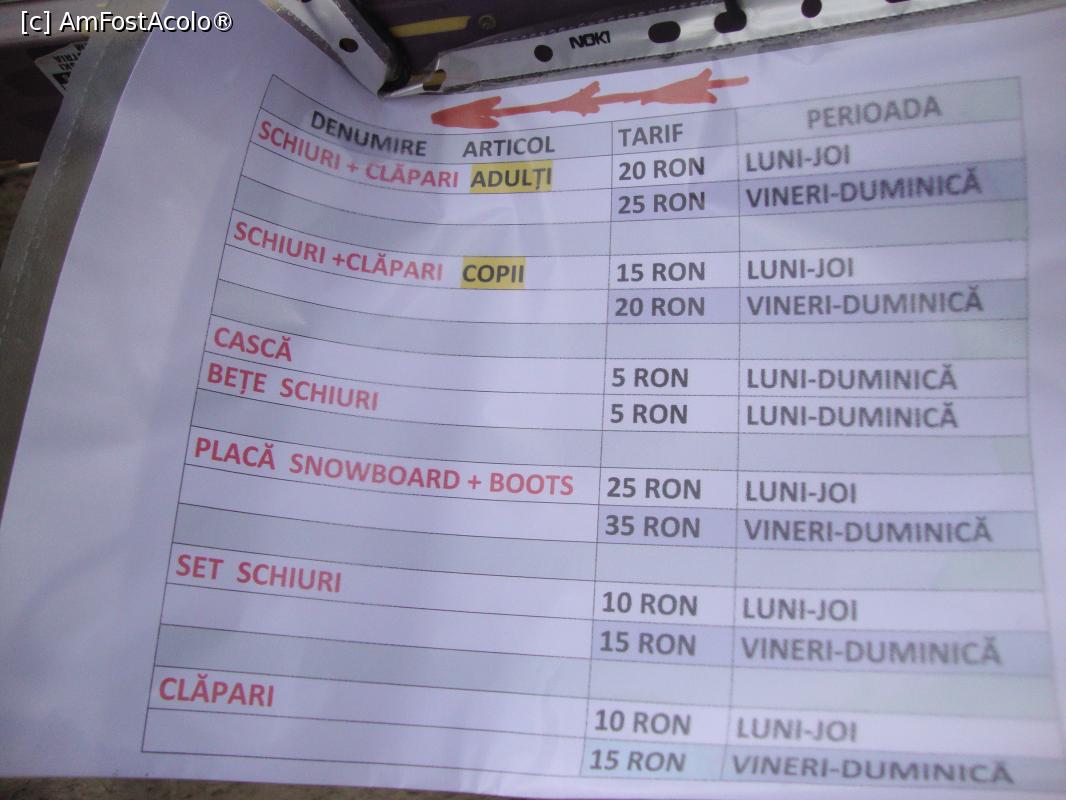 [c] AmFostAcolo®
NOKI
DENUMIRE ARTICOL TARIF PERIOADA
SCHIURI + CLĂPARI ADULȚI 20 RON LUNI-JOI
25 RON VINERI-DUMINICĂ
SCHIURI +CLĂPARI COPII 15 RON LUNI-JOI
20 RON VINERI-DUMINICĂ
CASCĂ 5 RON LUNI-DUMINICĂ
BEȚE SCHIURI 5 RON LUNI-DUMINICĂ
PLACĂ SNOWBOARD + BOOTS 25 RON LUNI-JOI
35 RON VINERI-DUMINICĂ
SET SCHIURI 10 RON LUNI-JOI
15 RON VINERI-DUMINICĂ
CLĂPARI 10 RON LUNI-JOI
15 RON VINERI-DUMINICĂ